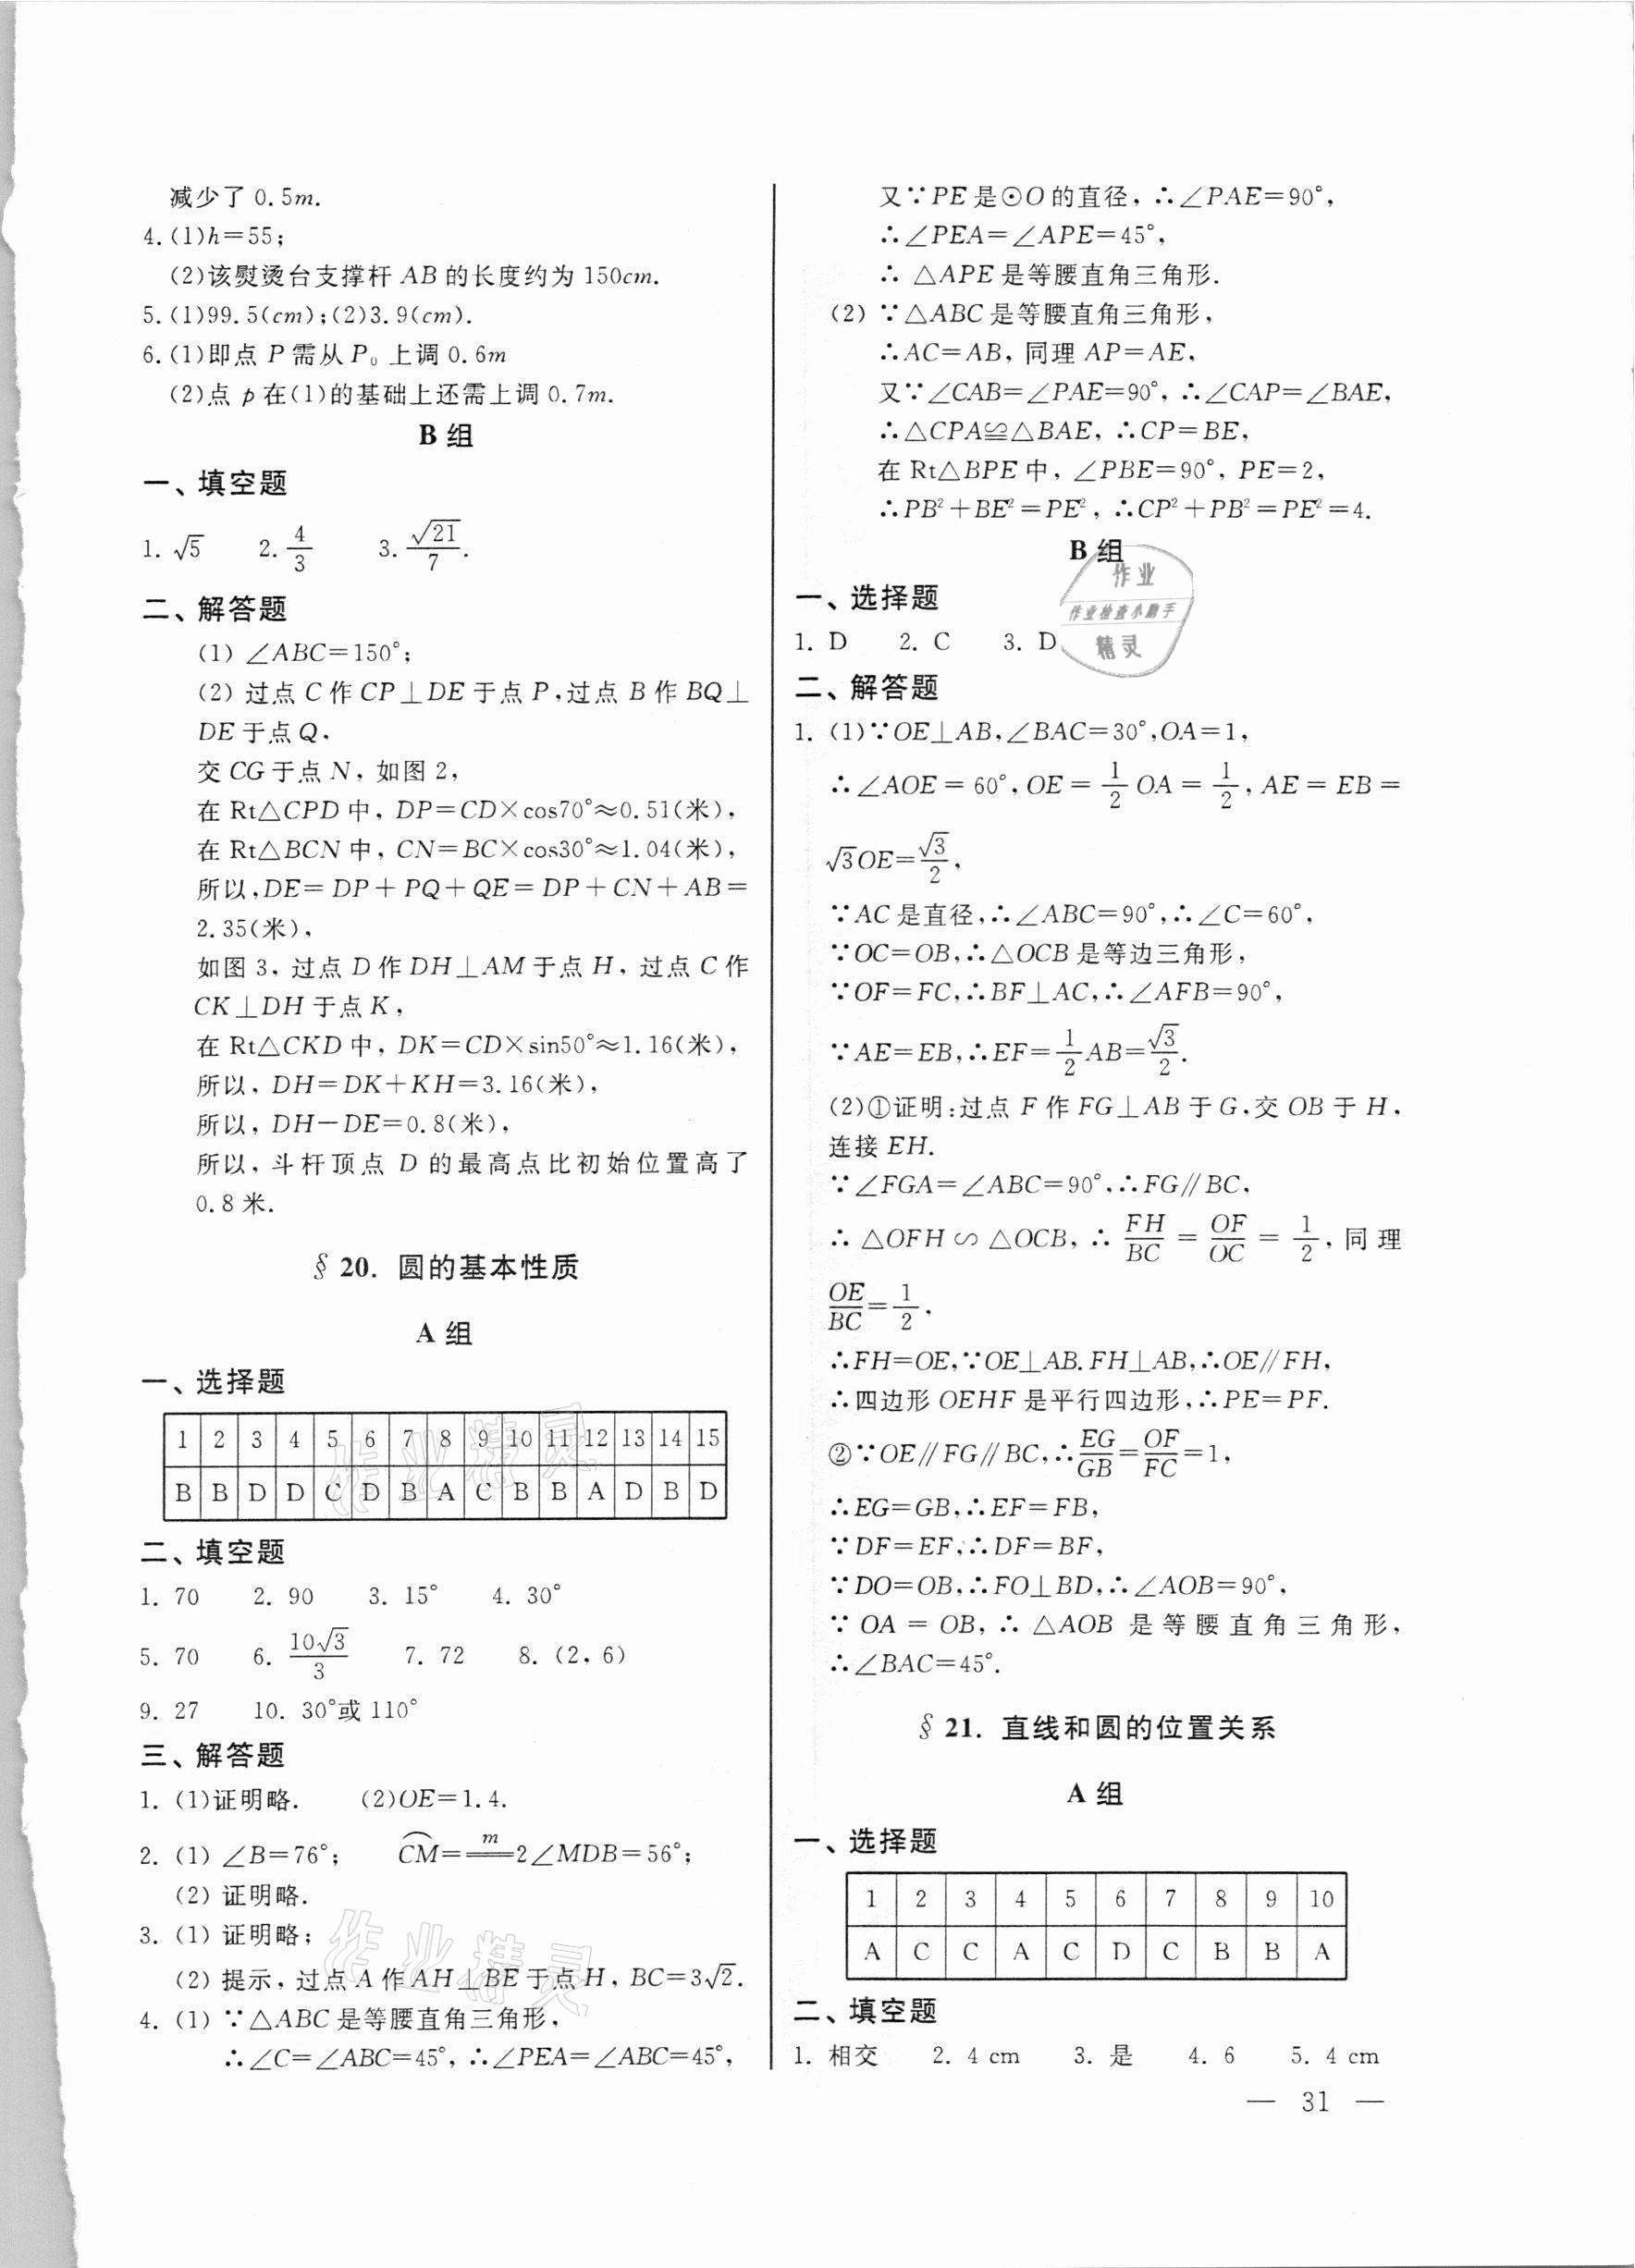 减少了 0.5m.
4.(1)h=55;
(2)该熨烫台支撑杆 AB 的长度约为 150cm.
5.(1)99.5(cm);(2)3.9(cm).
6.(1)即点 P 需从 P₀ 上调 0.6m
(2)点 p 在(1)的基础上还需上调 0.7m.
B 组
一、填空题
1. √5  2. 4/3  3. √21/7.
二、解答题
(1) ∠ABC=150°;
(2) 过点 C 作 CP⊥DE 于点 P,过点 B 作 BQ⊥
DE 于点 Q,
交 CG 于点 N, 如图 2,
在 Rt△CPD 中, DP=CD×cos70°≈0.51(米),
在 Rt△BCN 中, CN=BC×cos30°≈1.04(米),
所以,DE=DP+PQ+QE=DP+CN+AB=
2.35(米),
如图 3, 过点 D 作 DH⊥AM 于点 H, 过点 C 作
CK⊥DH 于点 K,
在 Rt△CKD 中, DK=CD×sin50°≈1.16(米),
所以, DH=DK+KH=3.16(米),
所以, DH-DE=0.8(米),
所以, 斗杆顶点 D 的最高点比初始位置高了
0.8 米.
§ 20. 圆的基本性质
A 组
一、选择题
1 2 3 4 5 6 7 8 9 10 11 12 13 14 15
B B D D C D B A C B B A D B D
二、填空题
1. 70  2. 90  3. 15°  4. 30°
5. 70  6. 10√3/3  7. 72  8. (2,6)
9. 27  10. 30°或 110°
三、解答题
1. (1)证明略.  (2)OE=1.4.
2. (1) ∠B=76°;  C͡M=m=2∠MDB=56°;
(2) 证明略.
3. (1) 证明略;
(2) 提示, 过点 A 作 AH⊥BE 于点 H, BC=3√2.
4. (1) ∵△ABC 是等腰直角三角形,
∴∠C=∠ABC=45°, ∴∠PEA=∠ABC=45°,
又∵PE 是⊙O 的直径, ∴∠PAE=90°,
∴∠PEA=∠APE=45°,
∴ △APE 是等腰直角三角形.
(2) ∵△ABC 是等腰直角三角形,
∴AC=AB, 同理 AP=AE,
又∵∠CAB=∠PAE=90°, ∴∠CAP=∠BAE,
∴△CPA≌△BAE, ∴CP=BE,
在 Rt△BPE 中, ∠PBE=90°, PE=2,
∴PB²+BE²=PE², ∴CP²+PB²=PE²=4.
B 组
一、选择题
1. D  2. C  3. D
作业
作业检查小助手
精灵
二、解答题
1. (1)∵OE⊥AB,∠BAC=30°,OA=1,
∴∠AOE=60°,OE=1/2 OA=1/2, AE=EB=
√3OE=√3/2,
∵AC 是直径,∴∠ABC=90°,∴∠C=60°,
∵OC=OB,∴△OCB 是等边三角形,
∵OF=FC,∴BF⊥AC,∴∠AFB=90°,
∵AE=EB,∴EF=1/2 AB=√3/2.
(2)①证明:过点 F 作 FG⊥AB 于 G,交 OB 于 H,
连接 EH.
∵∠FGA=∠ABC=90°,∴FG∥BC,
∴ △OFH∽△OCB, ∴ FH/BC=OF/OC=1/2, 同理
OE/BC=1/2,
∴FH=OE,∵OE⊥AB. FH⊥AB,∴OE∥FH,
∴四边形 OEHF 是平行四边形,∴PE=PF.
②∵OE∥FG∥BC,∴EG/GB=OF/FC=1,
∴EG=GB,∴EF=FB,
∵DF=EF,∴DF=BF,
∵DO=OB,∴FO⊥BD,∴∠AOB=90°,
∵ OA=OB, ∴ △AOB 是等腰直角三角形,
∴∠BAC=45°.
§ 21. 直线和圆的位置关系
A 组
一、选择题
1 2 3 4 5 6 7 8 9 10
A C C A C D C B B A
二、填空题
1. 相交  2. 4 cm  3. 是  4. 6  5. 4 cm
— 31 —
作业精灵
作业精灵